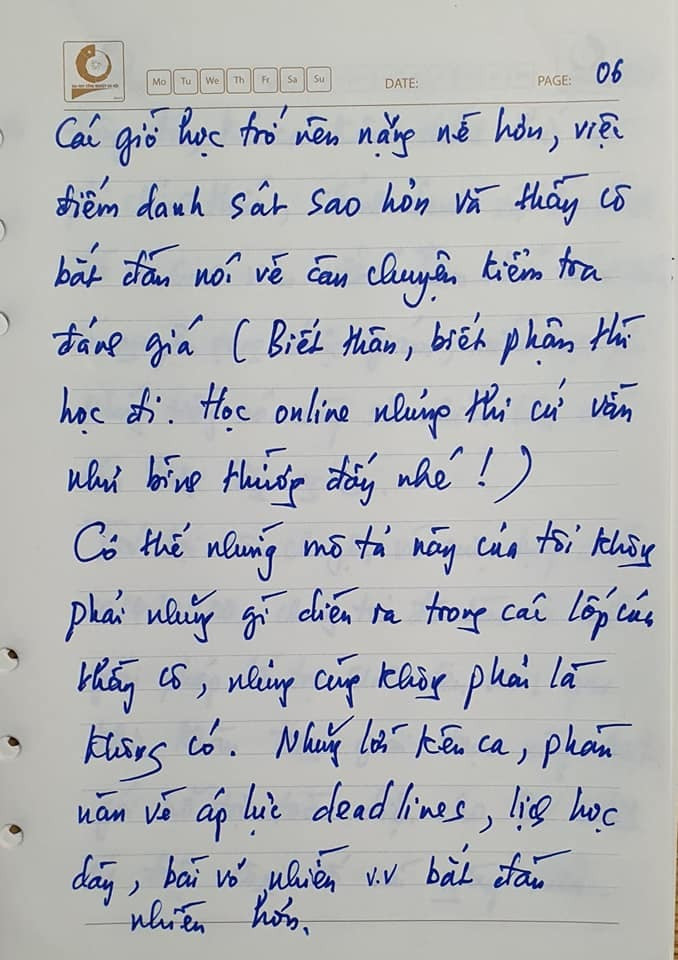 Mo Tu We Th Fr Sa Su DATE: PAGE: 06
Các giờ học trở nên nặng nề hơn, việc
điểm danh sát sao hơn và thầy cô
bắt đầu nói về các chuyện kiểm tra
đánh giá (Biết thân, biết phận thì
học đi. Học online nhưng thi cử vẫn
như bình thường đấy nhé!)
Có thể những mô tả này của tôi không
phải những gì diễn ra trong các lớp của
thầy cô, nhưng cũng không phải là
không có. Những lời kêu ca, phàn
nàn về áp lực deadlines, lịch học
dày, bài vở nhiều v.v bắt đầu
nhiều hơn.